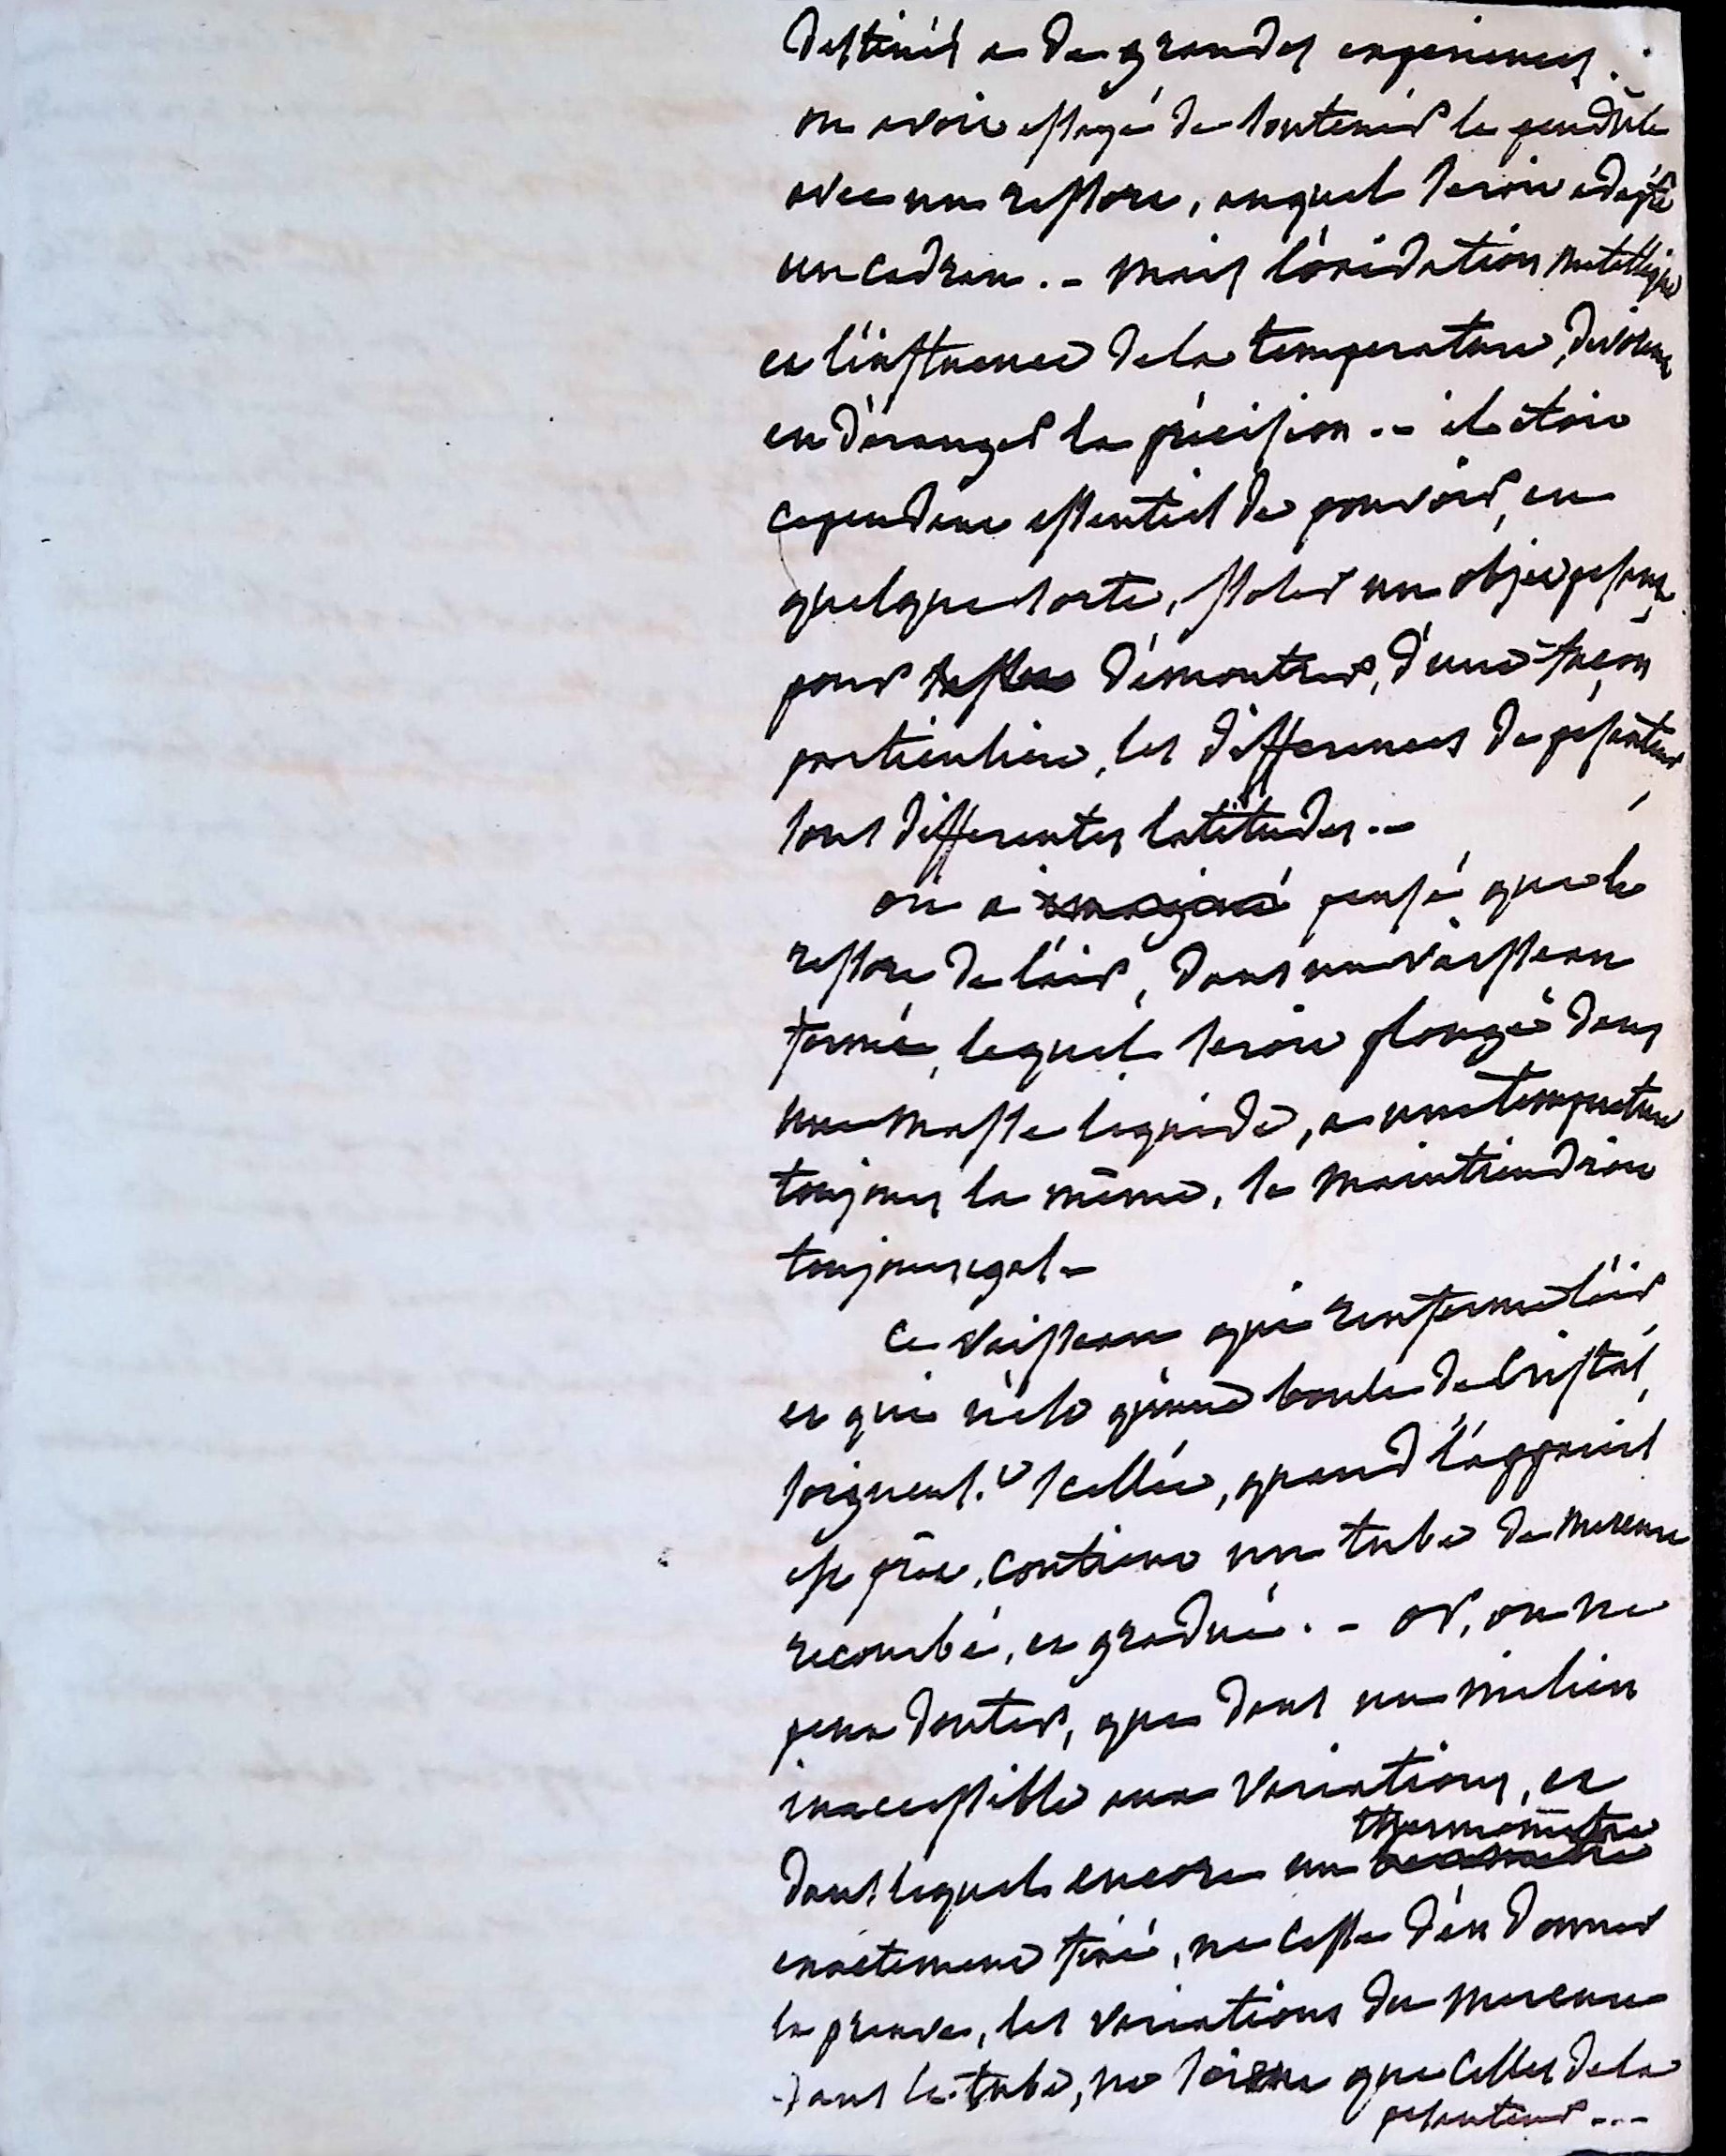 destinés a de grandes experiences.
on avoit essayé de soutenir le pendule
avec un ressort, auquel seroit adapté
un cadran. - mais l'oxidation metallique
et l'influence de la temperature, devoient
en déranger la précision. - il etoit
cependant essentiel de pouvoir, en
quelque sorte, isoler un objet pesant,
pour démontrer, d'une façon
particuliere, les differences de pesanteur
sous differentes latitudes. -
on a imaginé pensé que le
ressort de l'air, dans un vaisseau
fermé, lequel seroit plongé dans
une masse liquide, a une temperature
toujours la même, se maintiendroit
toujours egal -
ce vaisseau qui renferme l'air,
et qui n'est qu'une boule de cristal,
soigneus.t scellée, quand l'appareil
est prêt, contient un tube de mercure
recourbé, et gradué. - or, on ne
peut douter, que dans un milieu
inaccessible aux variations, et
thermomètre
dans lequel encore un
exactement fixé, ne cesse d'en donner
la preuve, les variations du mercure
dans le tube, ne soient que celles de la
pesanteur ...